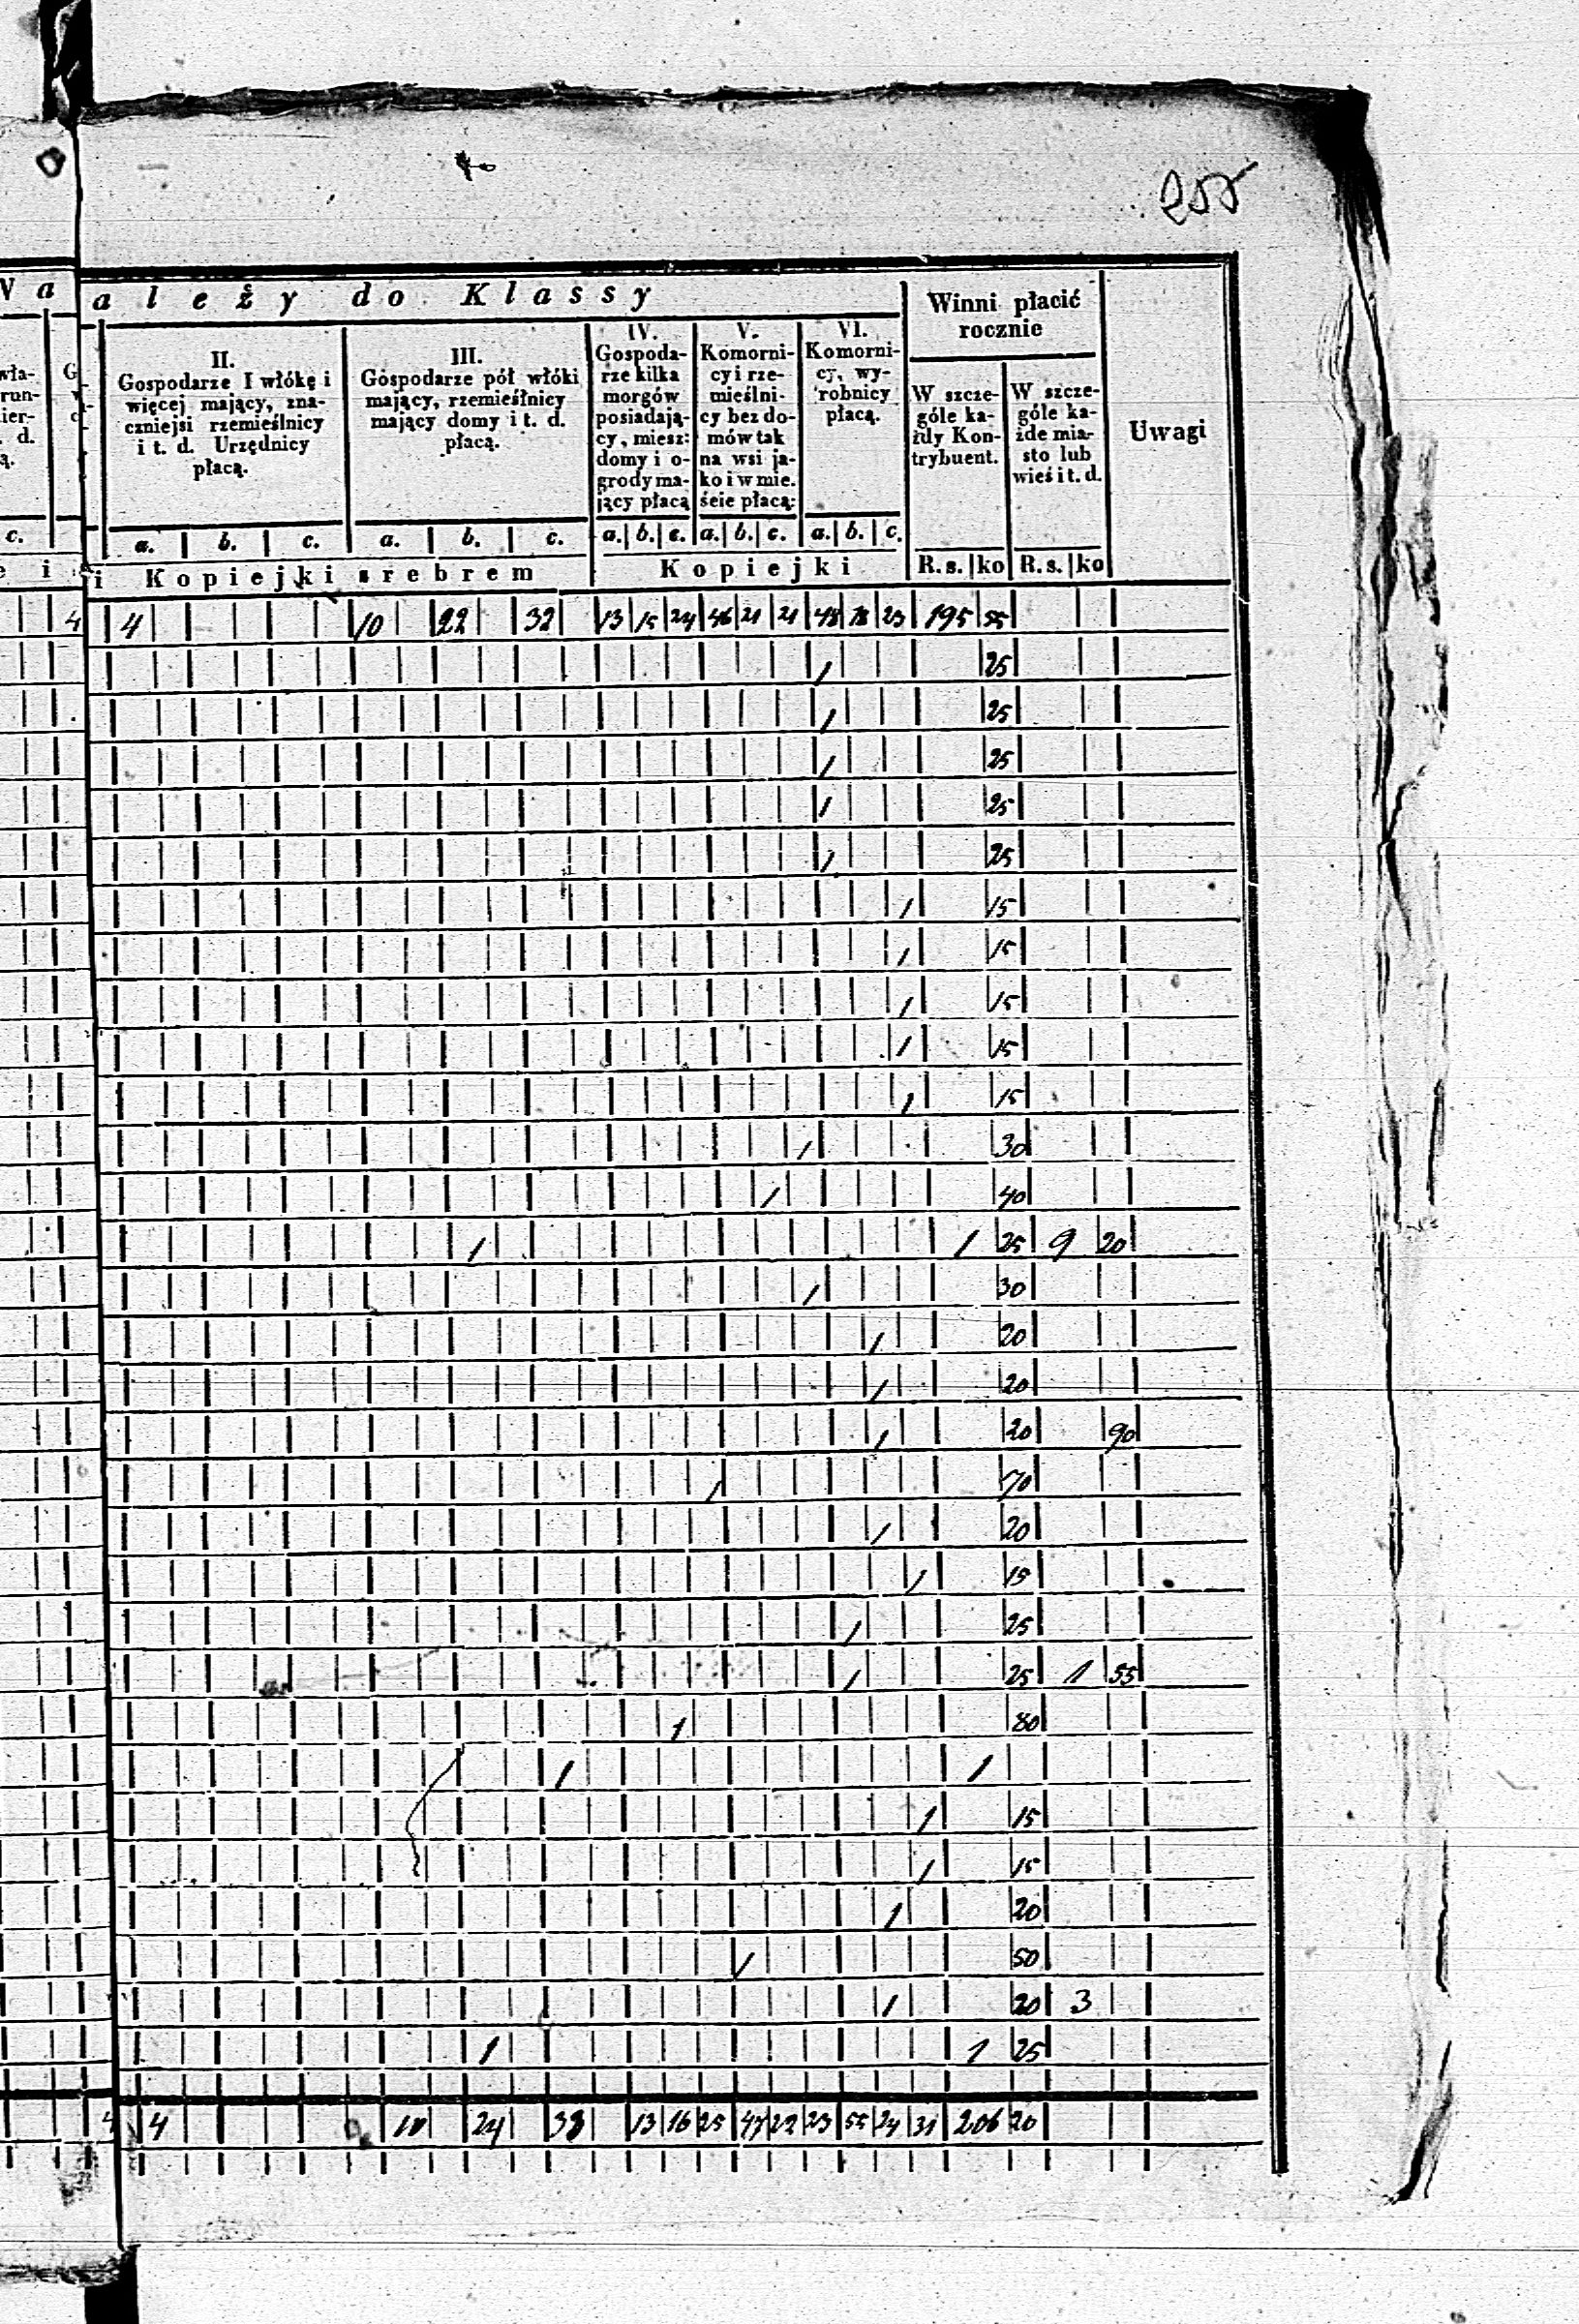 255
W a
a l e ż y d o K l a s s y
Winni płacić
rocznie
Uwagi
II.
Gospodarze I włókę i
więcej mający, zna-
czniejsi rzemieślnicy
i t. d. Urzędnicy
płacą.
III.
Gospodarze pół włóki
mający, rzemieślnicy
mający domy i t. d.
płacą.
IV.
Gospoda-
rze kilka
morgów
posiadają-
cy, miesz:
domy i o-
grody ma-
jący płacą
V.
Komorni-
cy i rze-
mieślni-
cy bez do-
mów tak
na wsi ja-
ko i w mie.
ście płacą:
VI.
Komorni-
cy, wy-
robnicy
płacą.
W szcze-
góle ka-
żdy Kon-
trybuent.
W szcze-
góle ka-
żde mia-
sto lub
wieś i t. d.
c. a. b. c. a. b. c. a. b. c. a. b. c. a. b. c.
K o p i e j k i s r e b r e m K o p i e j k i R. s. ko R. s. ko
4 4 10 22 32 13 15 24 46 21 21 48 18 23 195 55
/ 25
/ 25
/ 25
/ 25
/ 25
/ 15
/ 15
/ 15
/ 15
/ 15
/ 30
/ 40
/ 1 25 9 20
/ 30
/ 20
/ 20
/ 20 90
/ 70
/ 20
/ 15
/ 25
/ 25 1 55
1 80
/ 1
/ 15
/ 15
/ 20
/ 50
/ 20 3
1 1 25
4 4 10 24 33 13 16 25 47 22 23 55 24 31 206 20